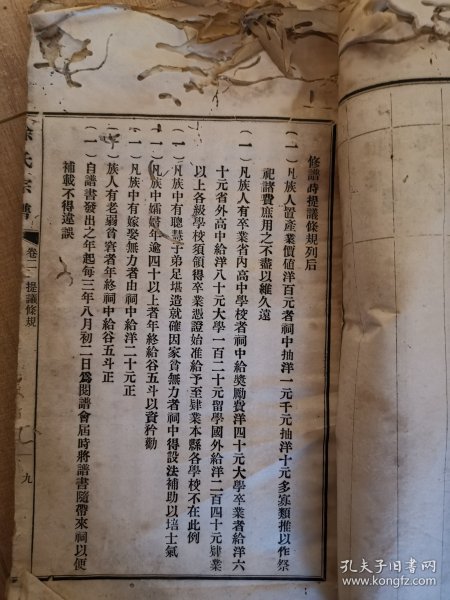 修譜時提議條規列后
(一)凡族人置產業價值洋百元者祠中抽洋一元千元抽洋十元多寡類推以作祭
祀諸費庶用之不盡以維久遠
(一)凡族人有卒業省內高中學校者祠中給獎勵費洋四十元大學卒業者給洋六
十元省外高中給洋八十元大學一百二十元留學國外給洋二百四十元肄業
以上各級學校須領得卒業憑證始准給予至肄業本縣各學校不在此例
(一)凡族中有聰慧子弟足堪造就確因家貧無力者祠中得設法補助以培士氣
(一)凡族中孀婦年逾四十以上者年終給谷五斗以資矜勸
(一)凡族中有嫁娶無力者由祠中給洋二十元正
(一)族人有老弱貧窘者年終祠中給谷五斗正
(一)自譜書發出之年起每三年八月初二日為閱譜會屆時將譜書隨帶來祠以便
補載不得違誤
氏宗譜 卷二 提議條規 九
孔夫子旧书网
www.kongfz.com